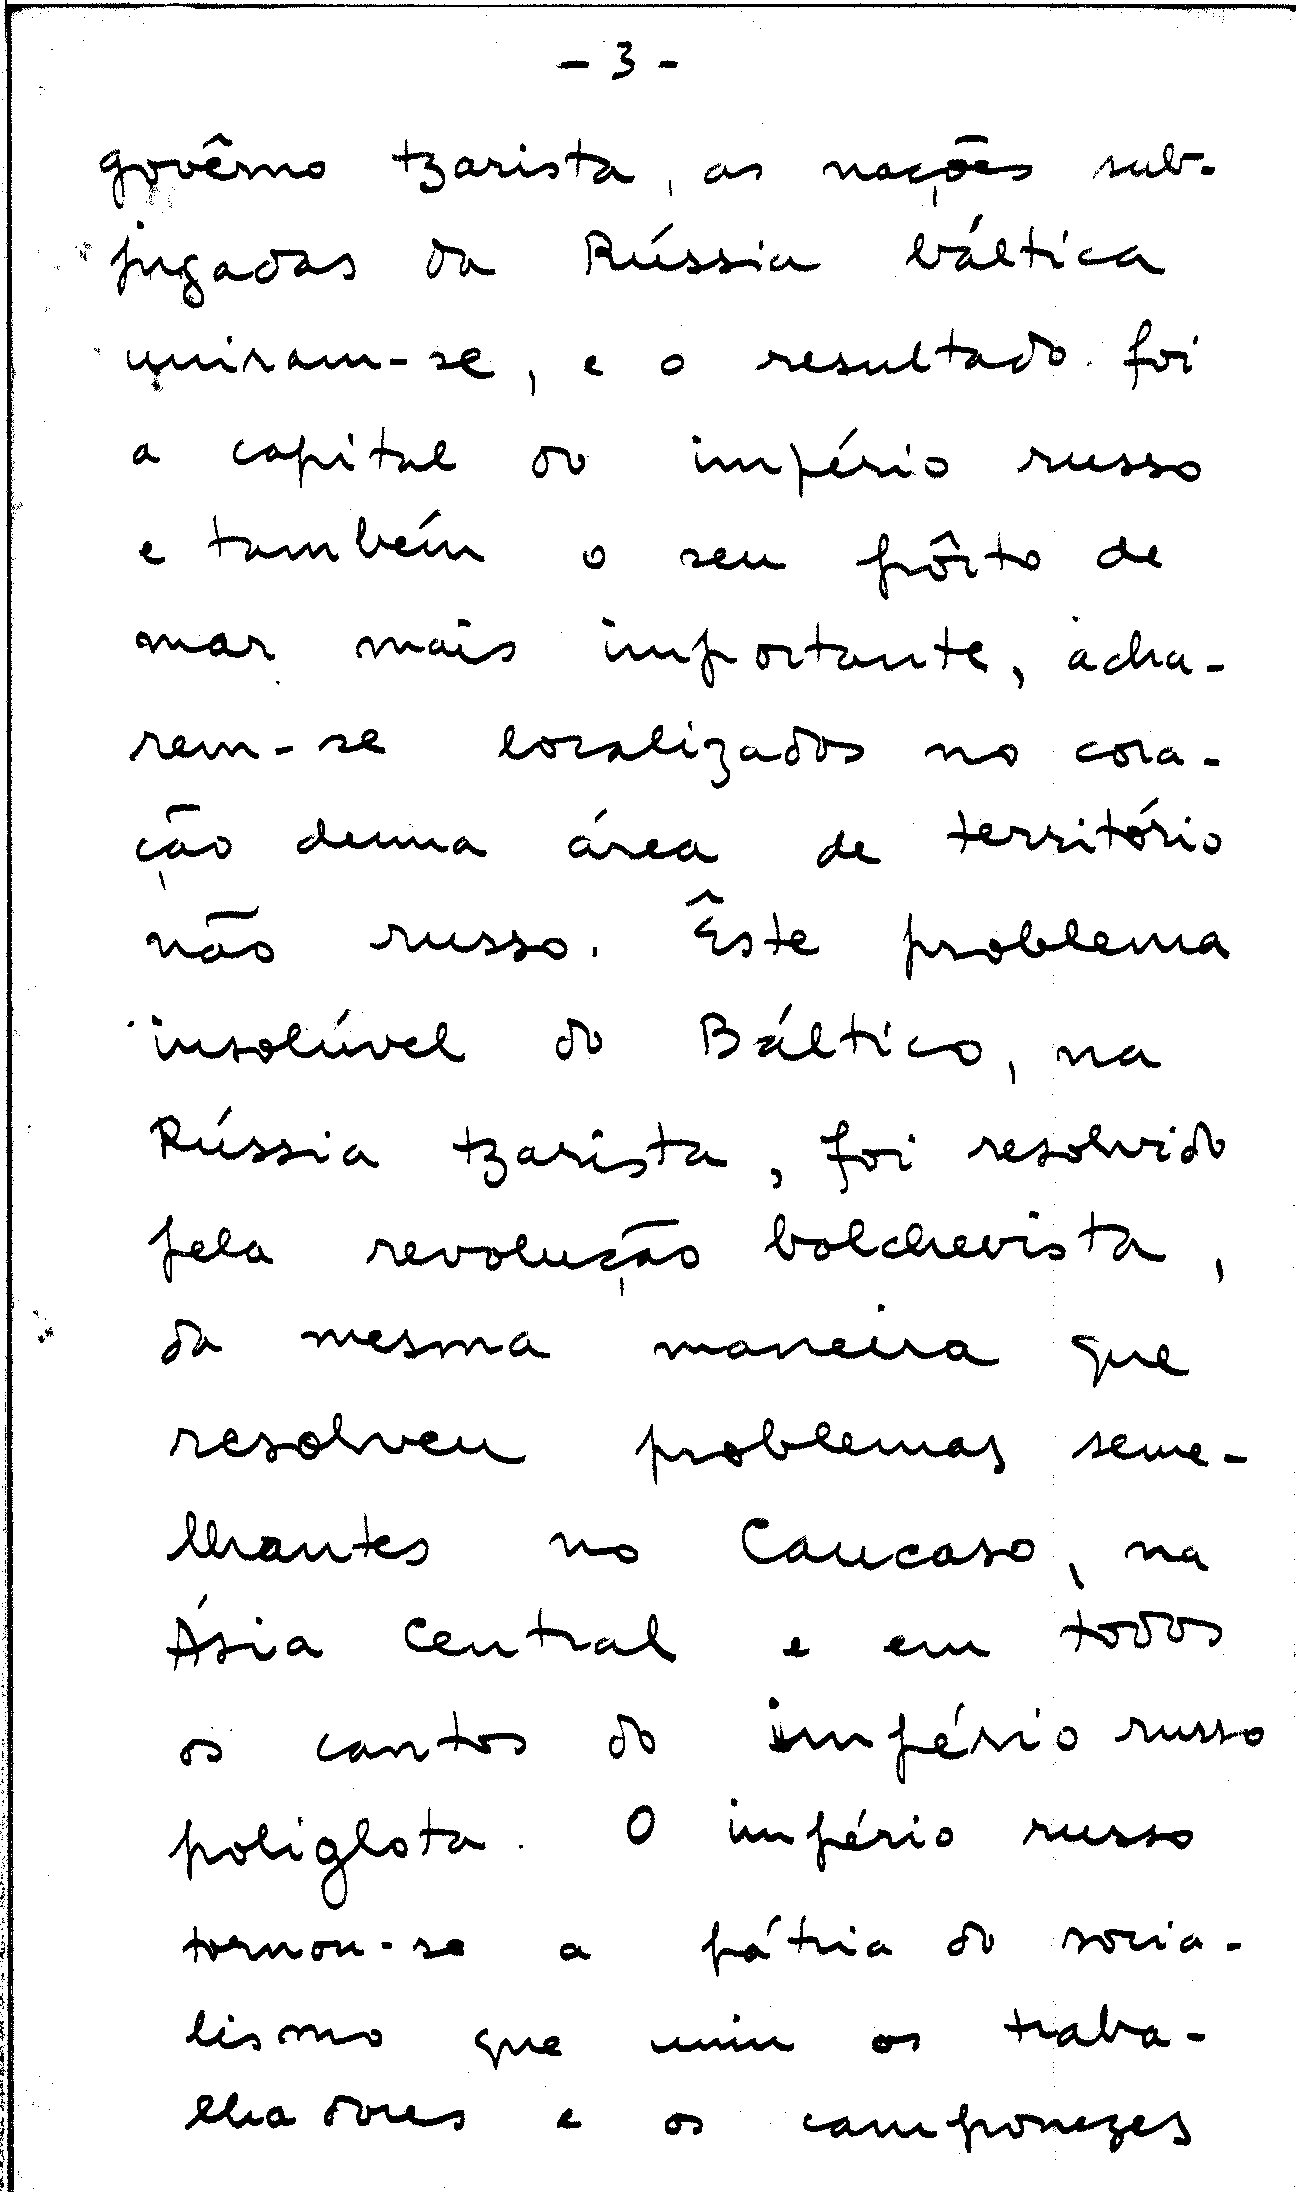 - 3 -
govêrno tzarista, as nações sub-
jugadas da Rússia báltica
uniram-se, e o resultado foi
a capital do império russo
e também o seu pôrto de
mar mais importante, acha-
rem-se localizados no cora-
ção duma área de território
não russo. Êste problema
insolúvel do Báltico, na
Rússia tzarista, foi resolvido
pela revolução bolchevista,
da mesma maneira que
resolveu problemas seme-
lhantes no Caucaso, na
Ásia Central e em todos
os cantos do império russo
poliglota. O império russo
tornou-se a pátria do socia-
lismo que uniu os traba-
lhadores e os camponezes